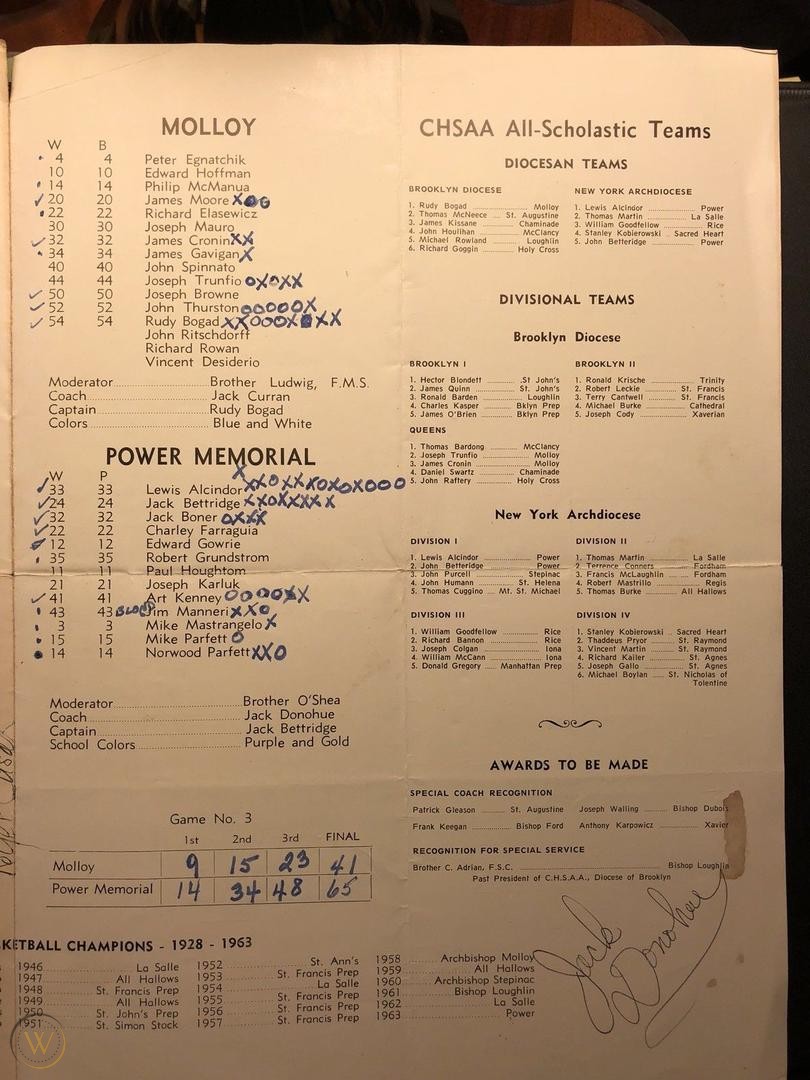 MOLLOY
W B
4 4 Peter Egnatchik
10 10 Edward Hoffman
14 14 Philip McManua
✓ 20 20 James Moore XOO
22 22 Richard Elasewicz
30 30 Joseph Mauro
✓ 32 32 James Cronin XX
34 34 James Gavigan X
40 40 John Spinnato
44 44 Joseph Trunfio OXOXX
✓ 50 50 Joseph Browne
✓ 52 52 John Thurston OOOOOX
✓ 54 54 Rudy Bogad XXOOOX XX
John Ritschdorff
Richard Rowan
Vincent Desiderio
Moderator Brother Ludwig, F.M.S.
Coach Jack Curran
Captain Rudy Bogad
Colors Blue and White
POWER MEMORIAL
W P
✓ 33 33 Lewis Alcindor
✓ 24 24 Jack Bettridge XXOXXXXX
✓ 32 32 Jack Boner OXXX
✓ 22 22 Charley Farraguia
12 12 Edward Gowrie
35 35 Robert Grundstrom
11 11 Paul Houghtom
21 21 Joseph Karluk
✓ 41 41 Art Kenney OOOOXX
43 43 Jim Manneri XXO
3 3 Mike Mastrangelo X
15 15 Mike Parfett O
14 14 Norwood Parfett XXO
Moderator Brother O'Shea
Coach Jack Donohue
Captain Jack Bettridge
School Colors Purple and Gold
Game No. 3
1st 2nd 3rd FINAL
Molloy 9 15 23 41
Power Memorial 14 34 48 65
CHSAA All-Scholastic Teams
DIOCESAN TEAMS
BROOKLYN DIOCESE
1. Rudy Bogad Molloy
2. Thomas McNeece St. Augustine
3. James Kissane Chaminade
4. John Houlihan McClancy
5. Michael Rowland Loughlin
6. Richard Goggin Holy Cross
NEW YORK ARCHDIOCESE
1. Lewis Alcindor Power
2. Thomas Martin La Salle
3. William Goodfellow Rice
4. Stanley Kobierowski Sacred Heart
5. John Betteridge Power
DIVISIONAL TEAMS
Brooklyn Diocese
BROOKLYN I
1. Hector Blondett .St John's
2. James Quinn St. John's
3. Ronald Barden Loughlin
4. Charles Kasper Bklyn Prep
5. James O'Brien Bklyn Prep
BROOKLYN II
1. Ronald Krische Trinity
2. Robert Leckie St. Francis
3. Terry Cantwell St. Francis
4. Michael Burke Cathedral
5. Joseph Cody Xaverian
QUEENS
1. Thomas Bardong McClancy
2. Joseph Trunfio Molloy
3. James Cronin Molloy
4. Daniel Swartz Chaminade
5. John Raftery Holy Cross
New York Archdiocese
DIVISION I
1. Lewis Alcindor Power
2. John Betteridge Power
3. John Purcell Stepinac
4. John Humann St. Helena
5. Thomas Cuggino Mt. St. Michael
DIVISION II
1. Thomas Martin La Salle
2 Terrence Conners Fordham
3. Francis McLaughlin Fordham
4. Robert Mastrillo Regis
5. Thomas Burke All Hallows
DIVISION III
1. William Goodfellow Rice
2. Richard Bannon Rice
3. Joseph Colgan Iona
4. William McCann Iona
5. Donald Gregory Manhattan Prep
DIVISION IV
1. Stanley Kobierowski Sacred Heart
2. Thaddeus Pryor St. Raymond
3. Vincent Martin St. Raymond
4. Richard Kailer St. Agnes
5. Joseph Gallo St. Agnes
6. Michael Boylan St. Nicholas of
Tolentine
AWARDS TO BE MADE
SPECIAL COACH RECOGNITION
Patrick Gleason St. Augustine Joseph Walling Bishop Dubois
Frank Keegan Bishop Ford Anthony Karpowicz Xavier
RECOGNITION FOR SPECIAL SERVICE
Brother C. Adrian, F.S.C. Bishop Loughlin
Past President of C.H.S.A.A., Diocese of Brooklyn
Jack Donohue
KETBALL CHAMPIONS - 1928 - 1963
1946 La Salle
1947 All Hallows
1948 St. Francis Prep
1949 All Hallows
1950 St. John's Prep
1951 St. Simon Stock
1952 St. Ann's
1953 St. Francis Prep
1954 La Salle
1955 St. Francis Prep
1956 St. Francis Prep
1957 St. Francis Prep
1958 Archbishop Molloy
1959 All Hallows
1960 Archbishop Stepinac
1961 Bishop Loughlin
1962 La Salle
1963 Power
W